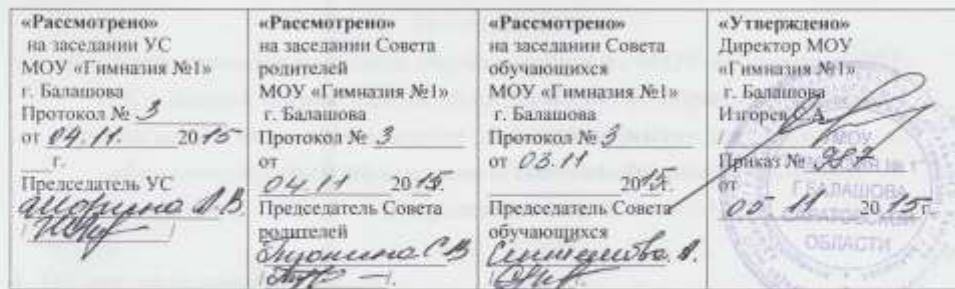 «Рассмотрено»
на заседании УС
МОУ «Гимназия №1»
г. Балашова
Протокол № 3
от 04.11. 2015
г.
Председатель УС
«Рассмотрено»
на заседании Совета
родителей
МОУ «Гимназия №1»
г. Балашова
Протокол № 3
от
04 11 2015.
Председатель Совета
родителей
«Рассмотрено»
на заседании Совета
обучающихся
МОУ «Гимназия №1»
г. Балашова
Протокол № 3
от 03.11
2015г.
Председатель Совета
обучающихся
«Утверждено»
Директор МОУ
«Гимназия №1»
г. Балашова
Изгорев С.А.
Приказ №
от
05 11 2015г.
МОУ
Г.БАЛАШОВА
САРАТОВСКОЙ
ОБЛАСТИ